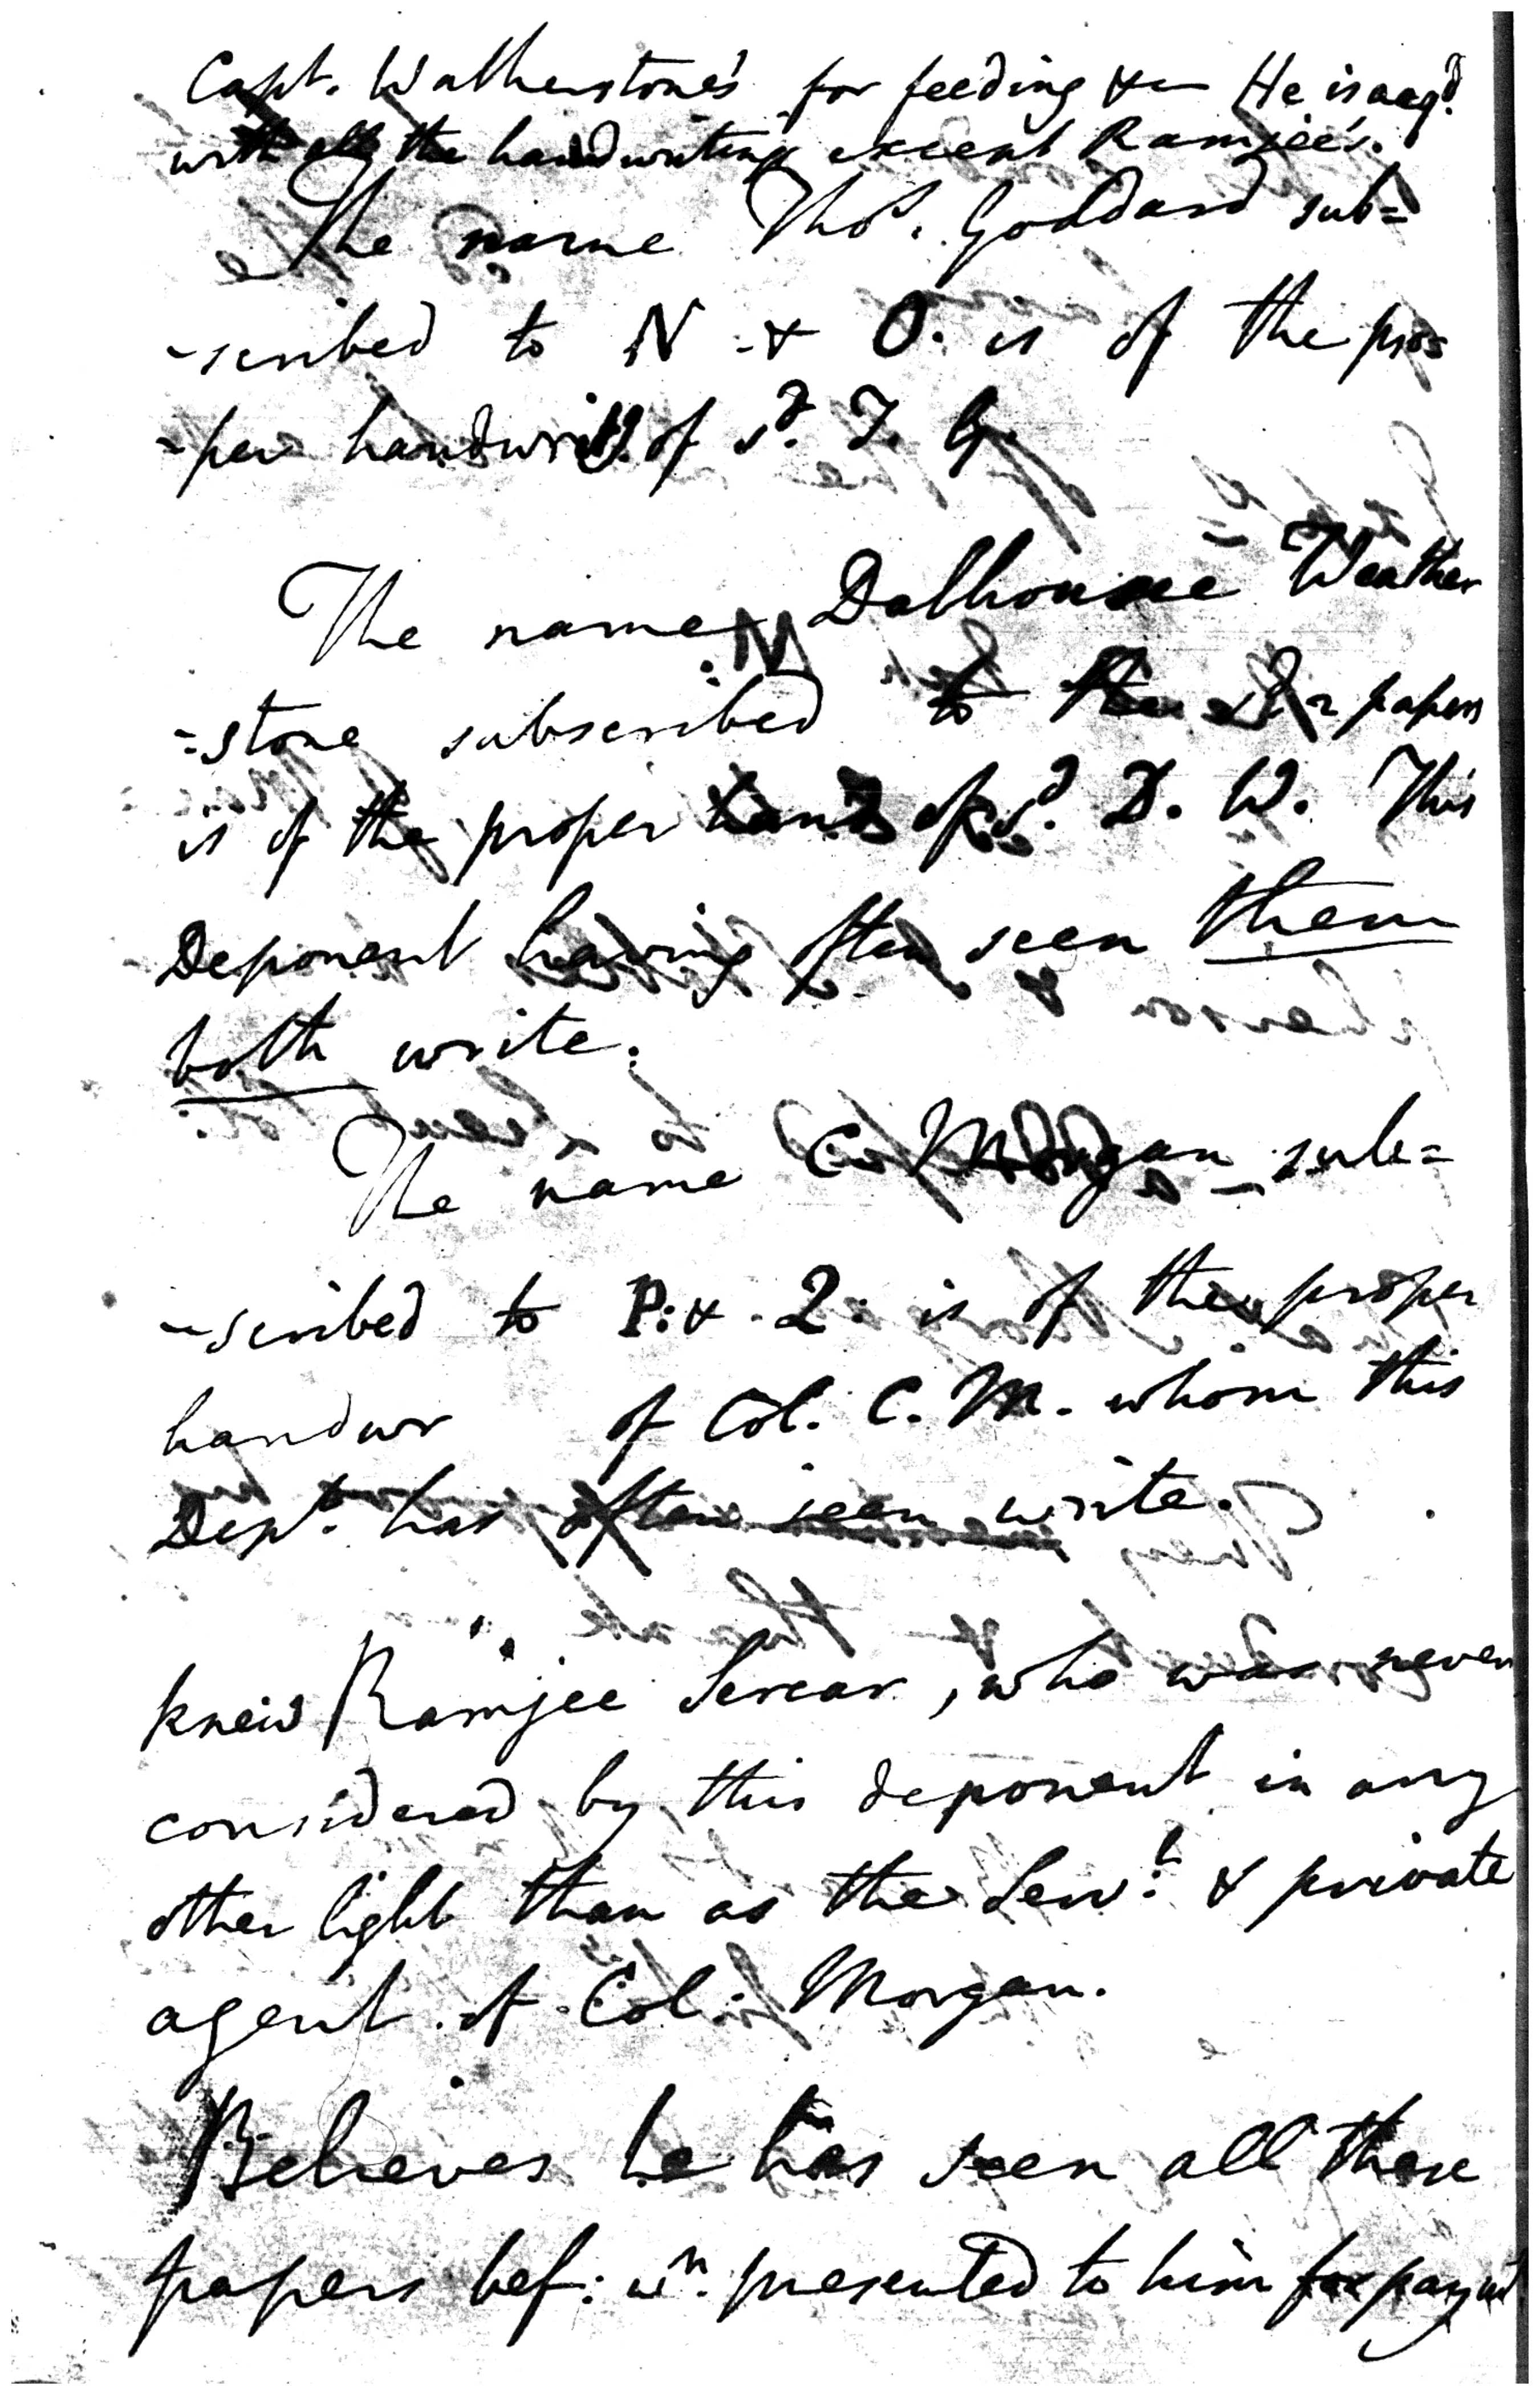 Capt. Watherstone's for feeding &c He is acq.d
with all the handwriting except Ramjee's.
The name Tho.s Goddard sub=
-scribed to N & O. is of the pro=
-per handwrit.g of s.d T. G.
The name Dalhousie Weather
=stone subscribed to the s.d 2 papers
is of the proper hand of s.d D. W. This
Deponent having often seen them
both write.
The name C. Morgan sub=
-scribed to P: & Q: is of the proper
handwr of Col. C. M. whom this
Dep.t has often seen write.
knew Ramjee Sercar, who was never
considered by this deponent in any
other light than as the Serv.t & private
agent of Col: Morgan.
Believes he has seen all these
papers bef: w.n presented to him for paym.t